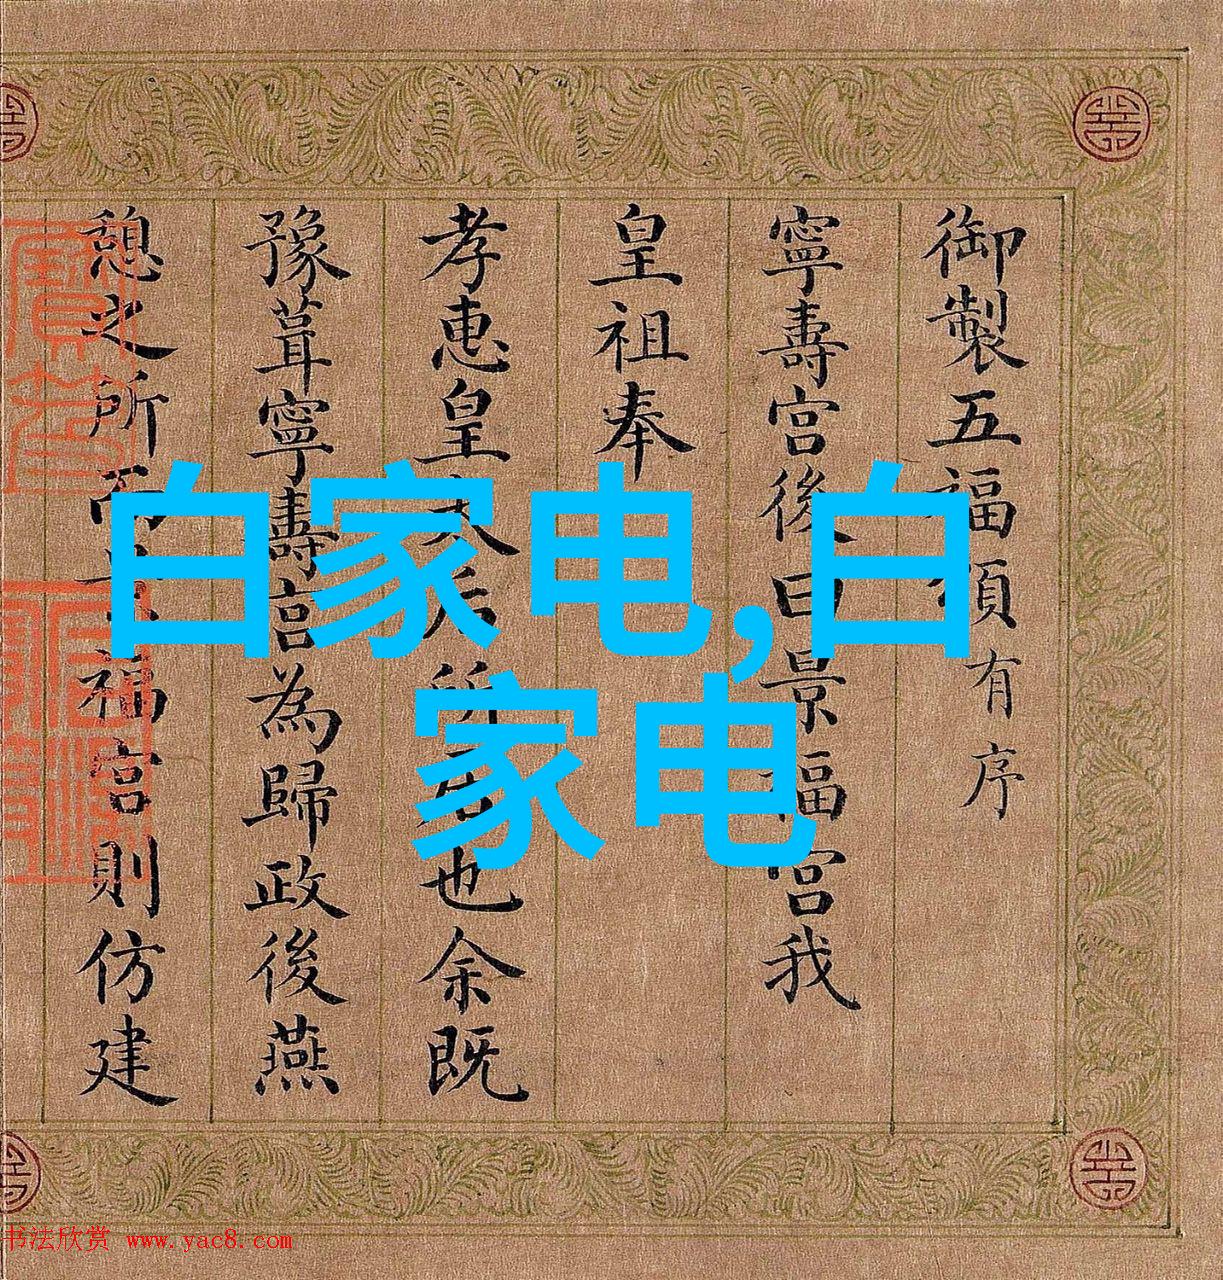 御製五福頌有序
寧壽宮後曰景福宮我
皇祖奉
孝惠皇太后所居也余既
豫葺寧壽宮為歸政後燕
憩之所而景福宮則仿建
白家电,白
家电
书法欣赏 www.yac8.com